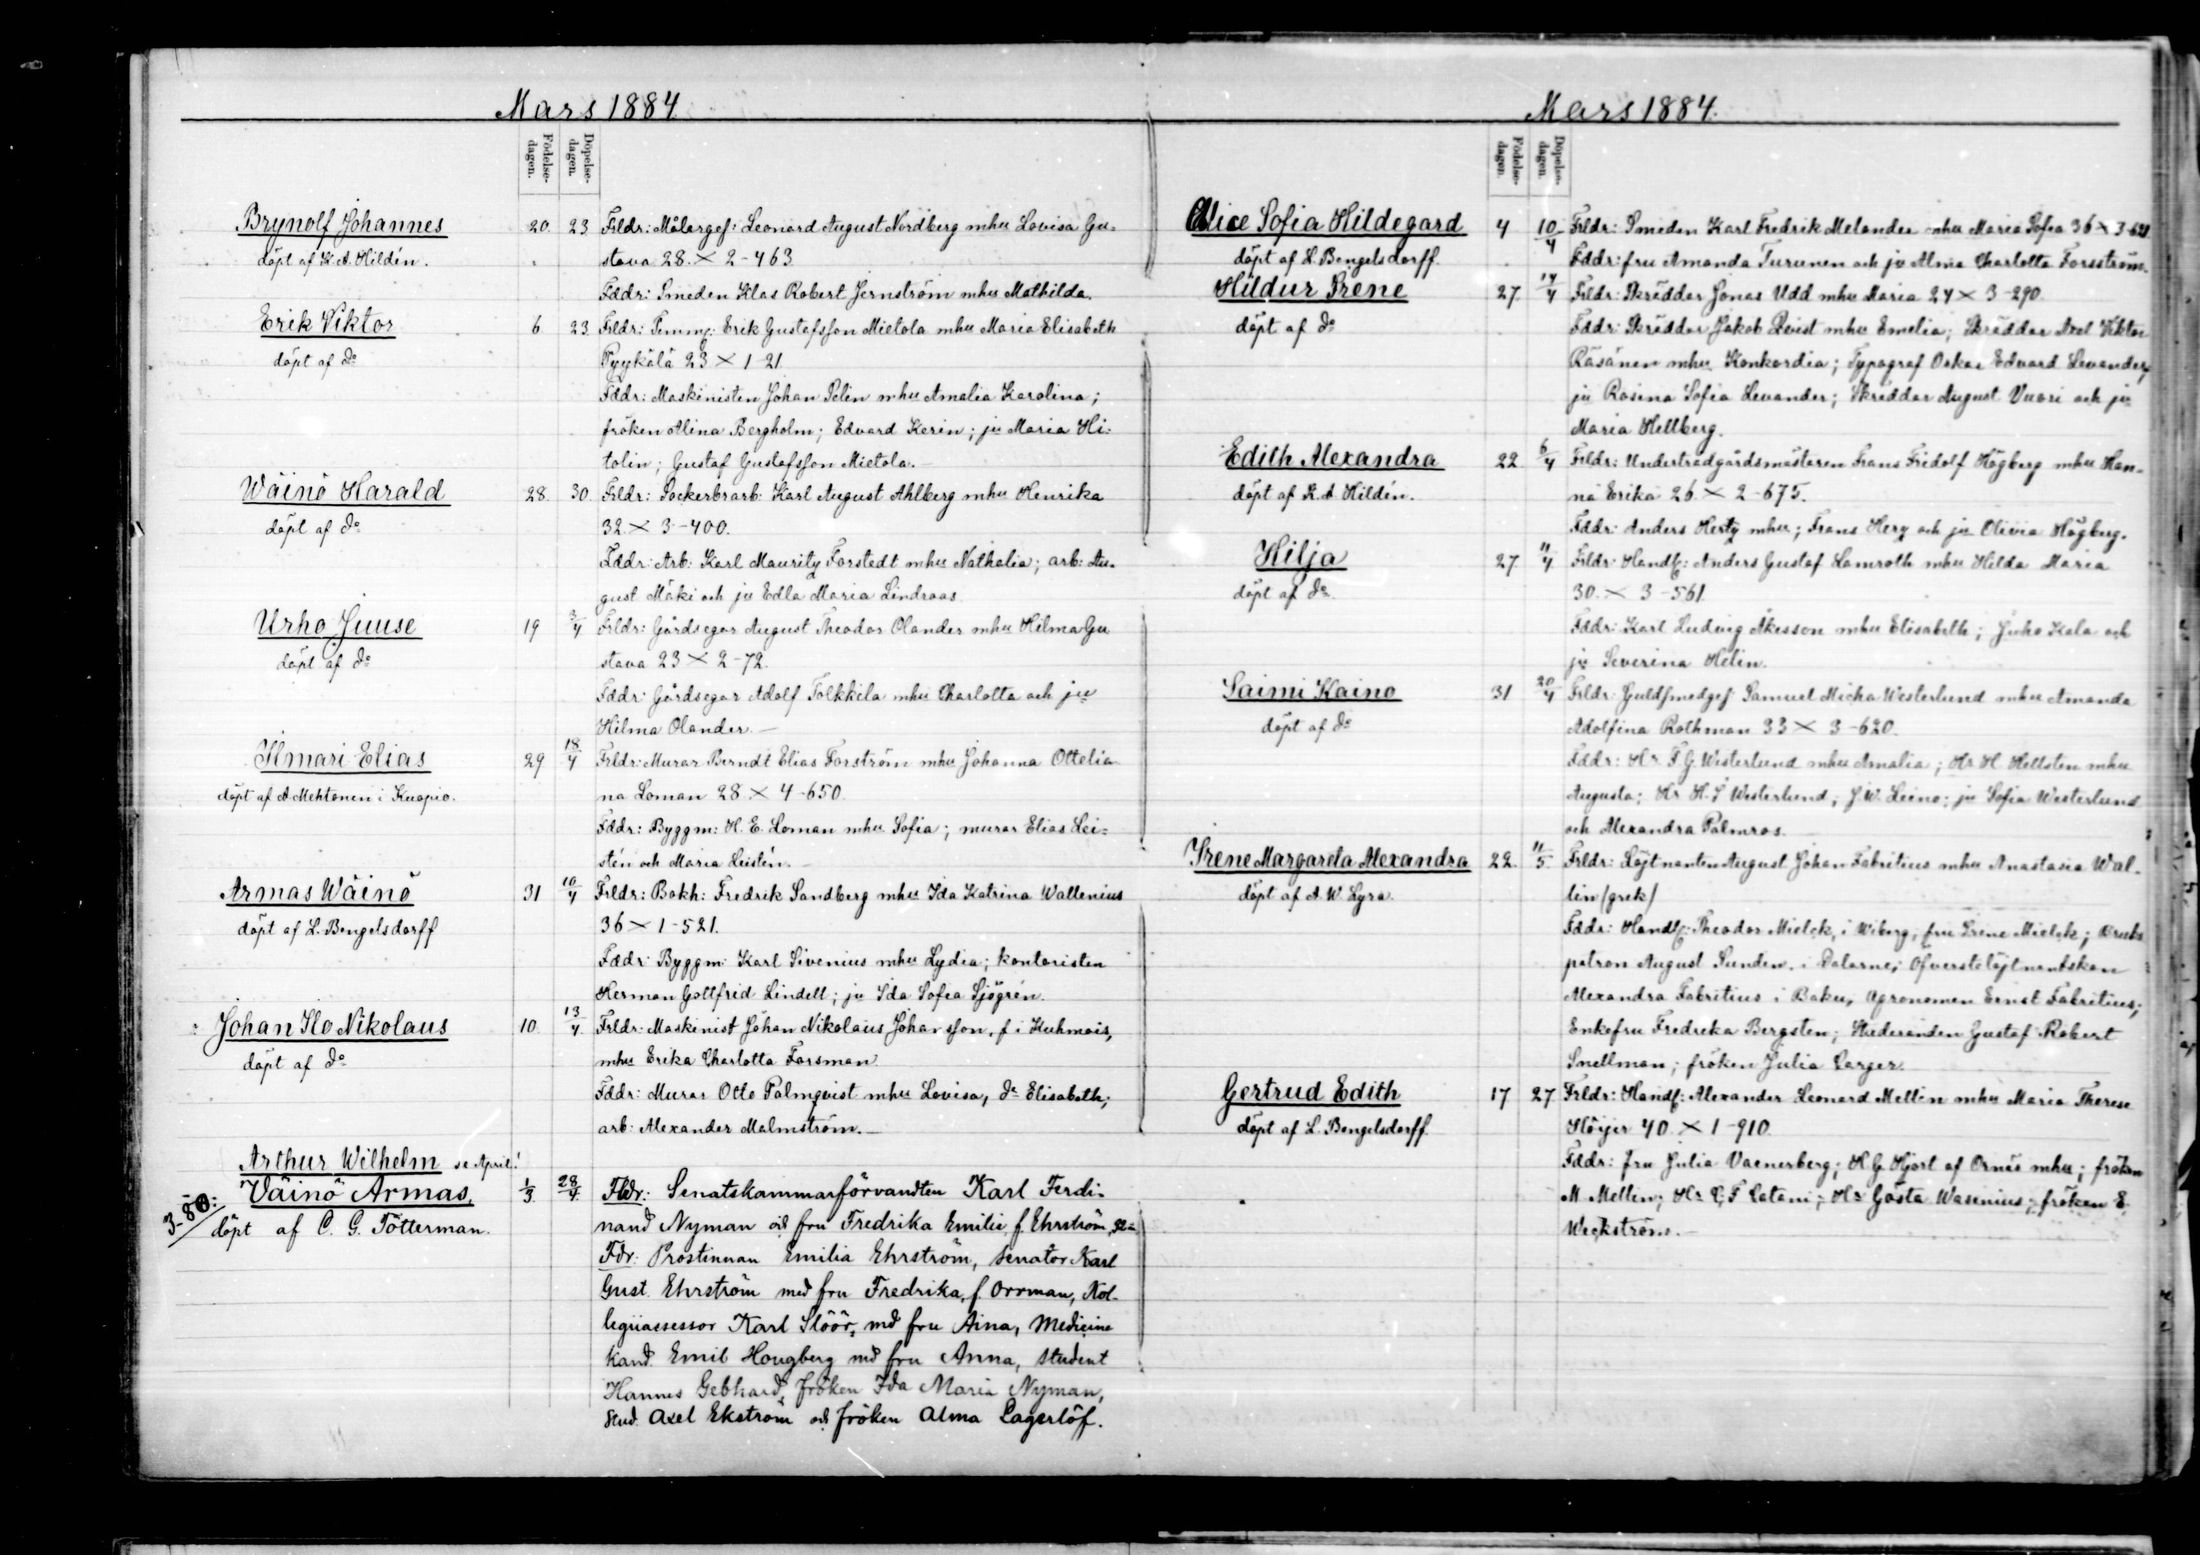 Mars 1884.
Födelse-dagen.
Döpelse-dagen.
Brynolf Johannes 20. 23 Frldr: Målargef: Leonard August Nordberg mhu Lovisa Gu-
döpt af K. A. Hildén. stava 28. × 2-463
Fddr: Smeden Klas Robert Jernström mhu Mathilda.
Erik Viktor 6. 23 Frldr: Timmg: Erik Gustafsson Mietola mhu Maria Elisabeth
döpt af do Pyykälä 23 × 1-21
Fddr: Maskinisten Johan Selin mhu Amalia Karolina;
fröken Alina Bergholm; Edvard Kerin; ju Maria Hi-
tolin; Gustaf Gustafsson Mietola.
Wäinö Harald 28. 30. Frldr: Sockerbrarb: Karl August Ahlberg mhu Henrika
döpt af do 32 × 3-400.
Fddr: Arb: Karl Mauritz Forstedt mhu Nathalia; arb: Au-
gust Mäki och ju Edla Maria Lindroos
Urho Juuse 19 3/4 Frldr: Gårdsegar August Theodor Olander mhu Hilma Gu
döpt af do stava 23 × 2-72.
Fddr: Gårdsegar Adolf Tolkkila mhu Charlotta och ju
Hilma Olander.
Ilmari Elias 29 18/4 Frldr: Murar Berndt Elias Forström mhu Johanna Ottelia-
döpt af A. Mehtonen i Kuopio. na Loman 28 × 4-650.
Fddr: Byggm: H. E. Loman mhu Sofia; murar Elias Lei-
stén och Maria Leistén.
Armas Wäinö 31 10/4 Frldr: Bokh: Fredrik Sandberg mhu Ida Katrina Wallenius
döpt af L. Bengelsdorff 36 × 1-521.
Fddr: Byggm: Karl Sivenius mhu Lydia; kontoristen
Herman Gottfrid Lindell; ju Ida Sofia Sjögrén.
Johan Ilo Nikolaus 10. 13/4 Frldr: Maskinist Johan Nikolaus Johansson, f. i Kuhmois,
döpt af do mhu Erika Charlotta Forsman.
Fddr: Murar Otto Palmqvist mhu Lovisa, do Elisabeth;
arb: Alexander Malmström.
Arthur Wilhelm se April!
3-80: Väinö Armas, 1/3. 28/4. Fldr: Senatskammarförvandten Karl Ferdi-
döpt af C. G. Tötterman. nand Nyman och fru Fredrika Emilie f. Ehrström,
Fdr: Prostinnan Emilia Ehrström, senator Karl
Gust. Ehrström med fru Fredrika, f. Orrman, Kol-
legiiassessor Karl Slöör, md fru Aina, Medicine
kand. Emil Hougberg md fru Anna, student
Hannes Gebhard, fröken Ida Maria Nyman,
Stud. Axel Ekström och fröken Alma Lagerlöf.
Mars 1884.
Födelse-dagen.
Döpelse-dagen.
Alice Sofia Hildegard 4 10/4 Frldr: Smeden Karl Fredrik Melander mhu Maria Sofia 36 ×
döpt af L. Bengelsdorff. Fddr: fru Amanda Turunen och ju Alma Charlotta Forsström.
Hildur Irene 27. 14/4 Frldr: Skräddar Jonas Udd mhu Maria 24 × 3-290.
döpt af do Fddr: Skräddar Jakob Qvist mhu Emelia; Skräddar Axel Viktor
Räsänen mhu Konkordia; Typograf Oskar Edvard Levander,
ju Rosina Sofia Levander; Skräddar August Vuori och ju
Maria Hellberg.
Edith Alexandra 22 6/4 Frldr: Underträdgårdsmästaren Frans Fridolf Högberg mhu Han-
döpt af K. A. Hildén. na Erika 26. × 2-675.
Fddr: Anders Hertz mhu; Frans Herz och ju Olivia Högberg.
Hilja 27. 11/4 Frldr: Handl: Anders Gustaf Lamroth mhu Hilda Maria
döpt af do 30. × 3-561.
Fddr: Karl Ludvig Åkesson mhu Elisabeth; Juho Kala och
ju Severina Helin.
Saimi Kaino 31 20/4 Frldr: Guldsmedgef: Samuel Micha Westerlund mhu Amanda
döpt af do Adolfina Rothman 33 × 3-620.
Fddr: Hr F. G. Westerlund mhu Amalia; Hr H. Hellsten mhu
Augusta; Hr H. S Westerlund; J. W. Leino; ju Sofia Westerlund
och Alexandra Palmros.
Irene Margareta Alexandra 22. 11/5. Frldr: Löjtnanten August Johan Fabritius mhu Anastasia Wal-
döpt af A. W. Lyra lin (grek)
Fddr: Handl: Theodor Mielck, i Wiborg, fru Irene Mielck; Bruks
patron August Sunden, i Dalarne; Öfverstelöjtnantskan
Alexandra Fabritius i Baku, Agronomen Ernst Fabritius;
Enkefru Fredrika Bergsten; Studeranden Gustaf Robert
Snellman; fröken Julia Larger.
Gertrud Edith 17 27 Frldr: Handl: Alexander Leonard Mellin mhu Maria Therese
döpt af L. Bengelsdorff. Höijer 40. × 1-910.
Fddr: fru Julia Vaenerberg; H. G. Hjort af Ornäs mhu; fröken
M. Mellin; Hr C. F. Catani; Hr Gösta Wasenius; fröken E.
Weckström.